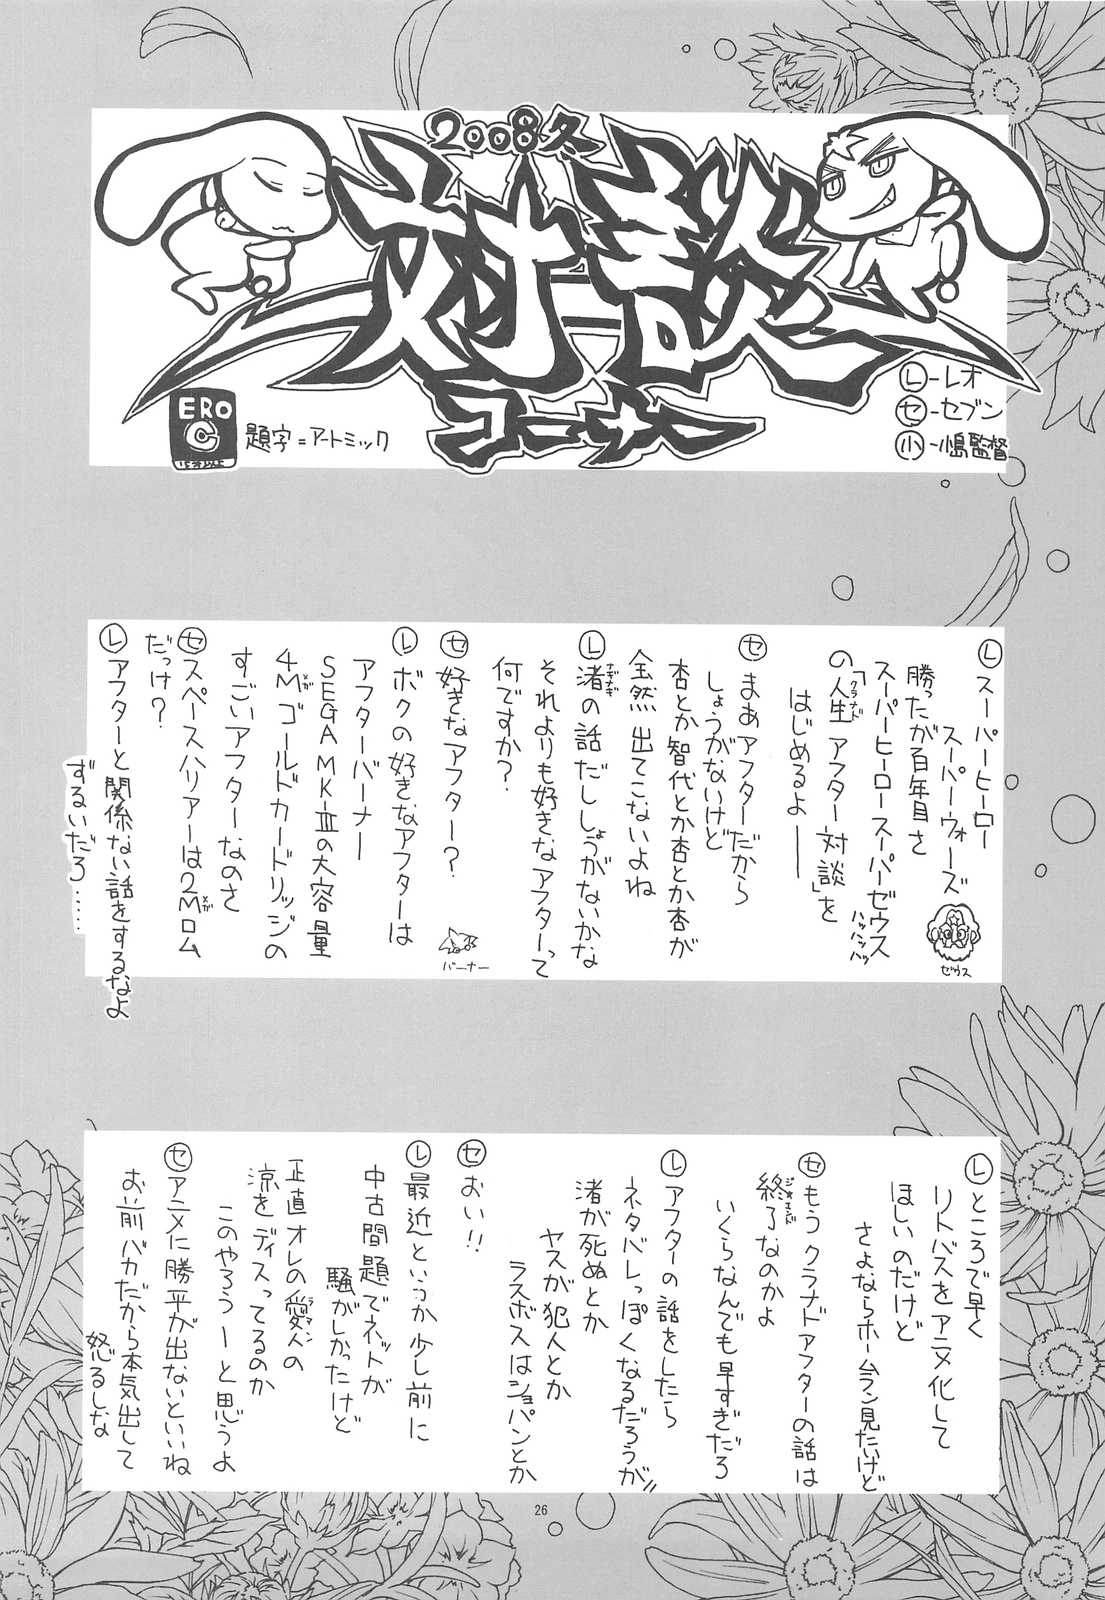 2008冬
対談
コーナー
ERO
C
題字=アートミック
Ⓛ-レオ
セ-セブン
小-小島監督
Ⓛスーパーヒーロー
スーパーウォーズ
勝ったが百年目さ
スーパーヒーロースーパーゼウス
ハッハッハッ
の「人生 アフター対談」を
クラナド
はじめるよ――
ゼウス
セ まあアフターだから
しょうがないけど
杏とか智代とか杏とか杏が
全然出てこないよね
Ⓛ渚の話だししょうがないかな
なぎなぎ
それよりも好きなアフターって
何ですか?
セ 好きなアフター?
バーナー
Ⓛボクの好きなアフターは
アフターバーナー
SEGA MK-Ⅲの大容量
4Mゴールドカードリッジの
メガ
すごいアフターなのさ
セ スペースハリアーは2Mロム
メガ
だっけ?
Ⓛアフターと関係ない話をするなよ
ずるいだろ……
Ⓛところで早く
リトバスをアニメ化して
ほしいのだけど
さよならホームラン見たいけど
セ もうクラナドアフターの話は
終了なのかよ
ジ・エンド
いくらなんでも早すぎだろ
Ⓛアフターの話をしたら
ネタバレっぽくなるだろうが!!
渚が死ぬとか
ヤスが犯人とか
ラスボスはショパンとか
セ おい!!
Ⓛ最近というか少し前に
中古問題でネットが
騒がしかったけど
正直オレの愛人の
ラマン
涼をディスってるのか
このやろうーと思うよ
セ アニメに勝平が出ないといいね
お前バカだから本気出して
怒るしな
26